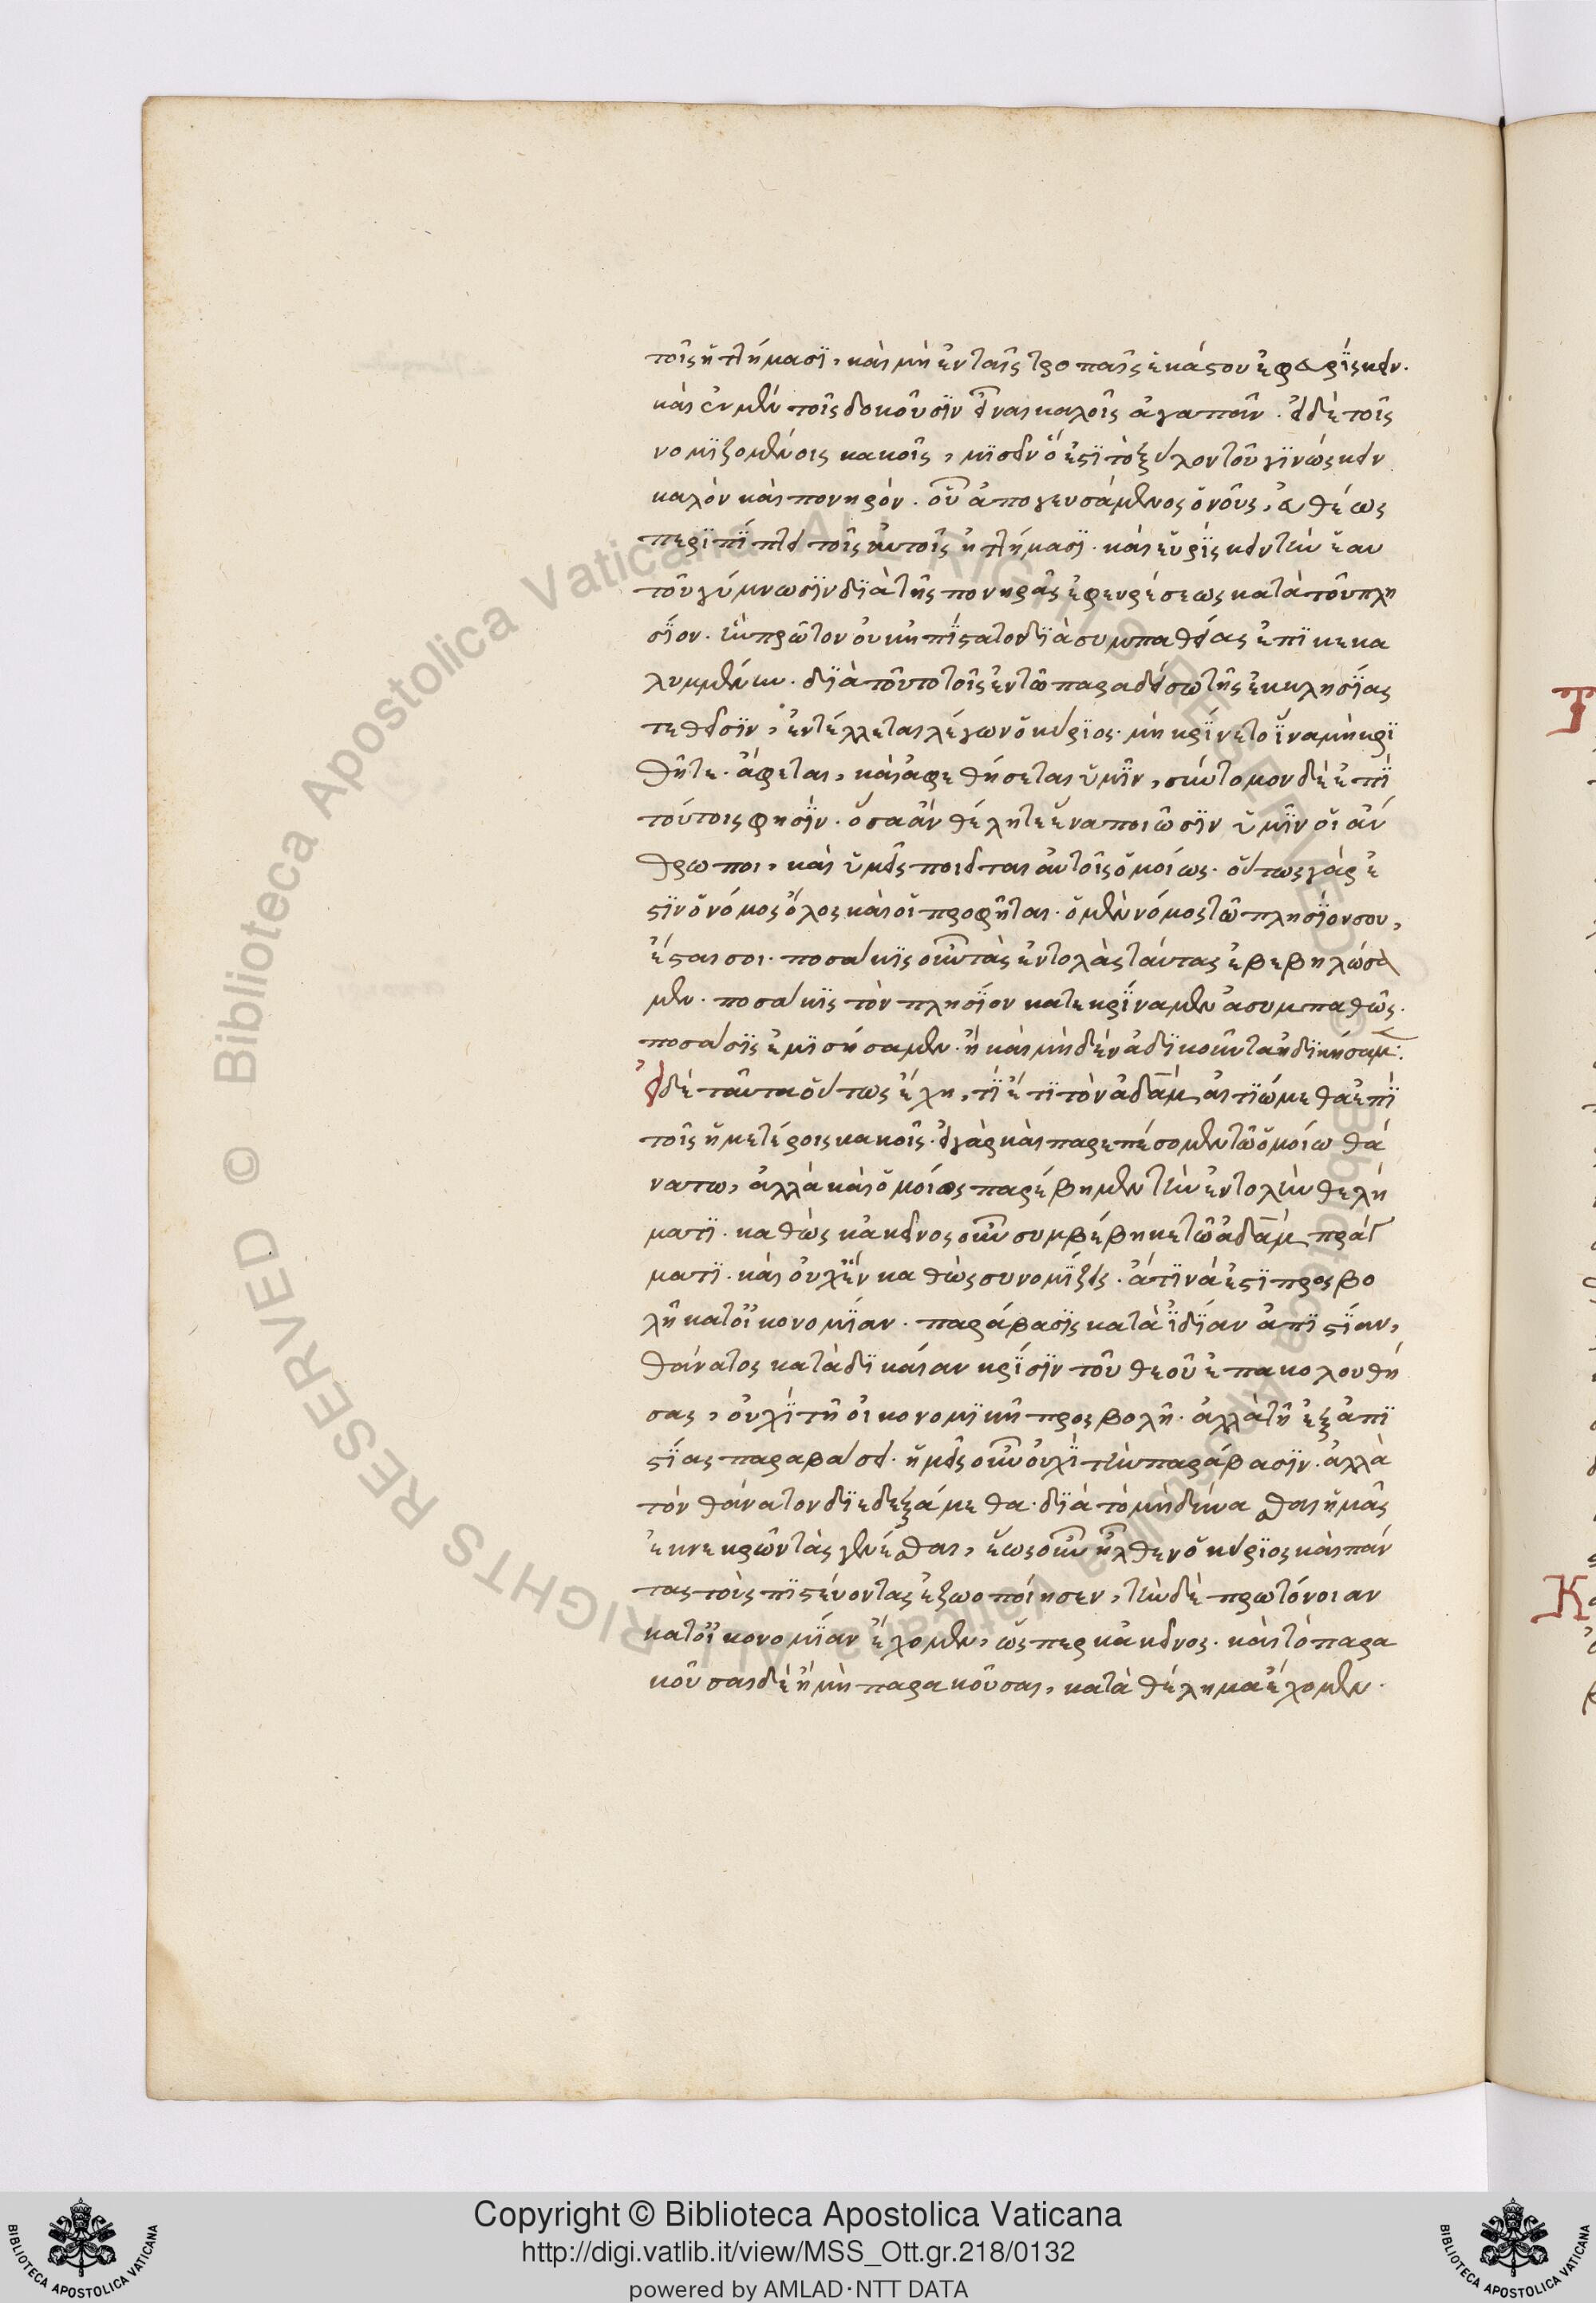 τοῖς ἡττήμασϊ, καὶ μὴ ἐν ταῖς τροπαῖς ἑκάστου ἐφαρΐσκειν.
καὶ ἐν μὲν τοῖς δοκοῦσϊν εἶναι καλοῖς ἀγαποῖν. εἰ δὲ τοῖς
νομϊζομένοις κακοῖς, μϊσεῖν ὅ ἐστϊ τὸ ξύλον τοῦ γϊνώσκειν
καλὸν καὶ πονηρόν. οὗ ἀπογευσάμενος ὁ νοῦς, εὐθέως
περϊπΐπτει τοῖς αὐτοῖς ἡττήμασϊ. καὶ εὑρΐσκει τὴν ἑαυ
τοῦ γύμνωσϊν δϊὰ τῆς πονηρᾶς ἐφευρέσεως κατὰ τοῦ πλη
σΐον. ἣν πρῶτον οὐκ ἠπΐστατο δϊὰ συμπαθείας ἐπϊκεκα
λυμμένην. δϊὰ τοῦτο τοῖς ἐν τῶ παραδείσω τῆς ἐκκλησΐας
τεθεῖσϊν, ἐντέλλεται λέγων ὁ κύρϊος. μὴ κρΐνετε ἵνα μὴ κρϊ
θῆτε. ἄφεται, καὶ ἀφεθήσεται ὑμῖν, σύντομον δὲ ἐπὶ
τούτοις φησὶν. ὅσα ἂν θέλητε ἵνα ποιῶσϊν ὑμῖν οἱ ἄν
θρωποι, καὶ ὑμεῖς ποιεῖται αὐτοῖς ὁμοίως. οὕτως γάρ ἐ
στϊν ὁ νόμος ὅλος καὶ οἱ προφῆται. ὁ μὲν νόμος τῶ πλησΐον σου,
ἔσται σοι. ποσάκϊς οὖν τὰς ἐντολὰς ταύτας ἐβεβηλώσα
μεν. ποσάκϊς τὸν πλησΐον κατεκρΐναμεν ἀσυμπαθῶς.
ποσάσϊς ἐμϊσήσαμεν. ἢ καὶ μηδὲν ἀδϊκοῦντα ἠδϊκήσαμ.
εἰ δὲ ταῦτα οὕτως ἔχη, τΐ ἔτϊ τὸν ἀδὰμ αἰτϊώμεθα ἐπὶ
τοῖς ἡμετέροις κακοῖς. εἰ γὰρ καὶ παρεπέσομεν τῶ ὁμοίω θα
νάτω, ἀλλὰ καὶ ὁμοίως παρέβημεν τὴν ἐντολὴν θελή
ματϊ. καθὼς κἀκεῖνος οὖν συμβέβηκε τῶ ἀδὰμ πράγ
ματϊ. καὶ οὐχ ἓν καθὼς συ νομΐζεις. ἅτϊνά ἐστϊ προσβο
λὴ κατ οἰκονομΐαν. παράβασϊς κατὰ ἰδΐαν ἀπϊστΐαν,
θάνατος κατὰ δϊκαίαν κρΐσϊν τοῦ θεοῦ ἐπακολουθή
σας, οὐχὶ τῆ οἰκονομϊκῆ προσβολῆ. ἀλλὰ τῆ ἐξ ἀπϊ
στΐας παραβάσει. ἡμεῖς οὖν οὐχὶ τὴν παράβασϊν. ἀλλὰ
τὸν θάνατον δϊεδεξάμεθα. δϊὰ τὸ μὴ δύνασθαι ἡμᾶς
ἐκ νεκρῶν τὰς γενέσθαι, ἕως οὖν ἦλθεν ὁ κύρϊος καὶ πάν
τας τοὺς πϊστεύοντας ἐζωοποίησεν, τὴν δὲ πρωτόνοιαν
κατ οἰκονομΐαν ἔχομεν, ὥσπερ κἀκεῖνος. καὶ τὸ παρα
κοῦσαι δὲ ἢ μὴ παρακοῦσαι, κατὰ θέλημα ἔχομεν.
Copyright © Biblioteca Apostolica Vaticana
http://digi.vatlib.it/view/MSS_Ott.gr.218/0132
powered by AMLAD·NTT DATA